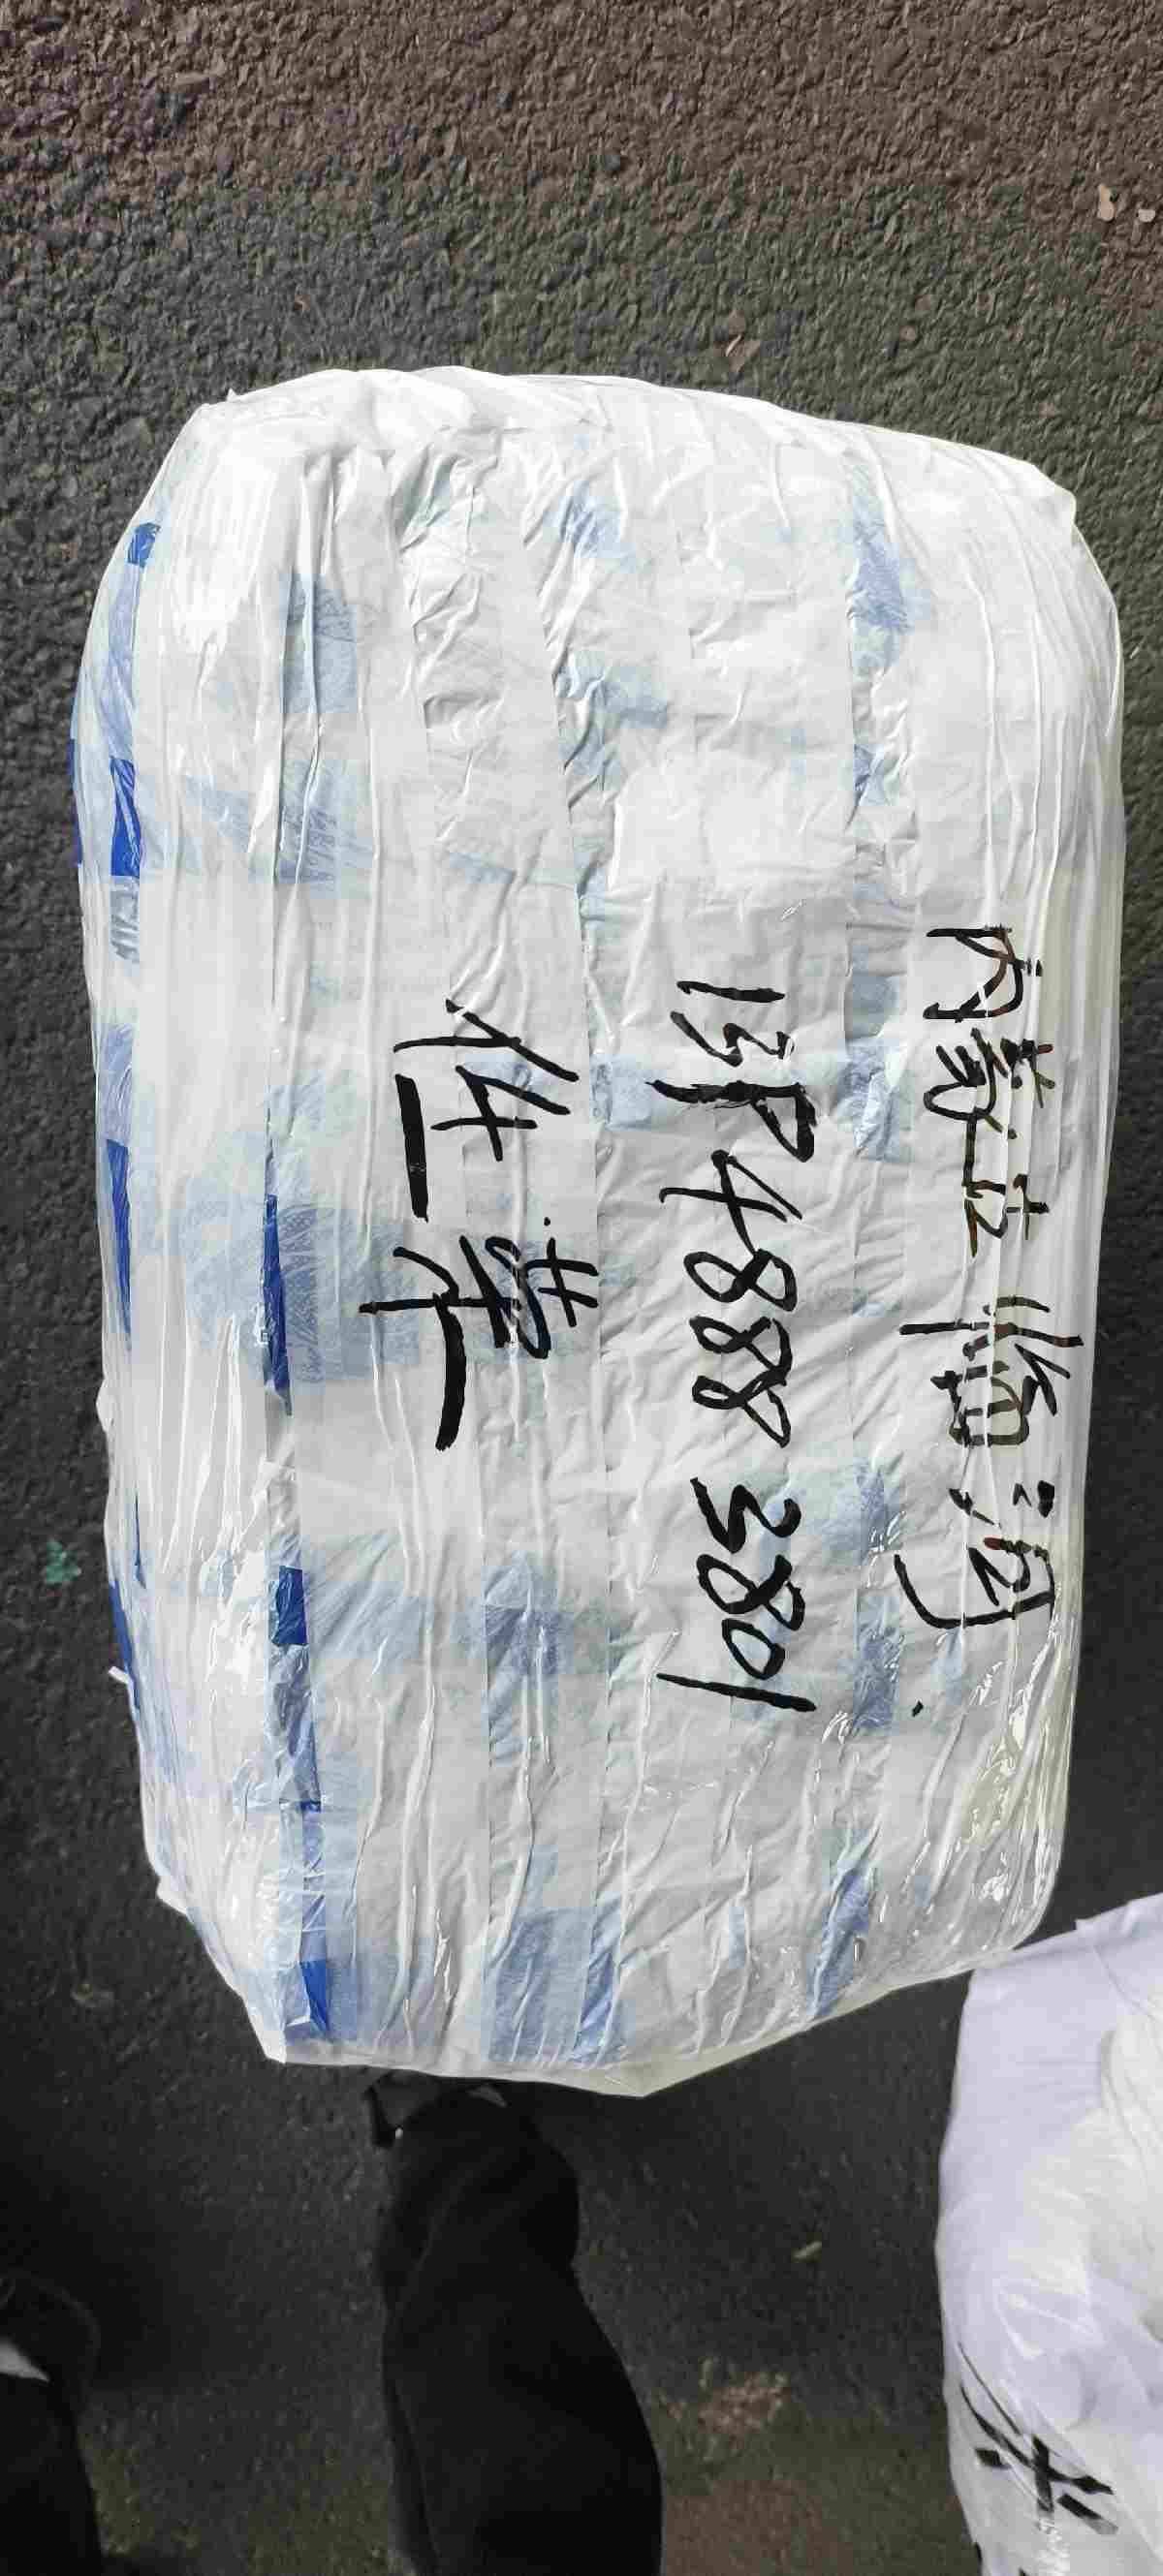 内蒙古 临河.
13948883801
任